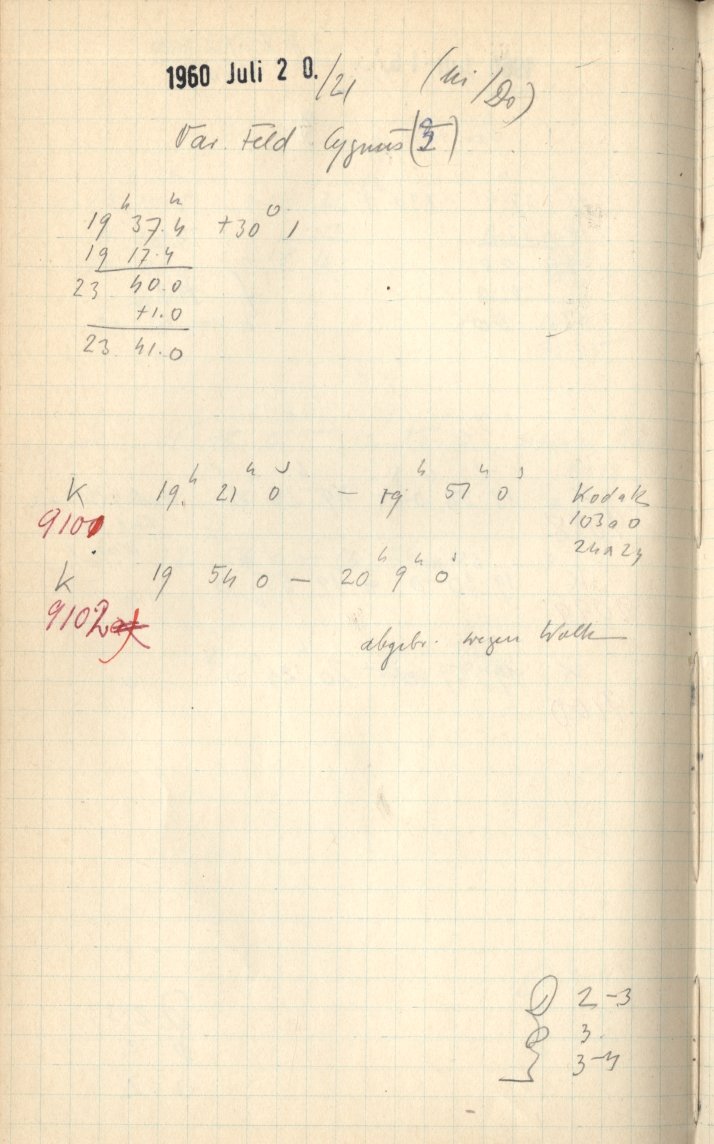 1960 Juli 20./21 (Ni/Do)
Var. Feld Cygnus (3)
19h 37.4 +30° 1
19 17.4
23 40.0
+1.0
23 41.0
K 19h 21 0 – 19h 51 0 Kodak
9100 103a0
24a24
K 19 54 0 – 20h 9 0
9102 abgebr. wegen Wolk
D 2-3
3
3-4